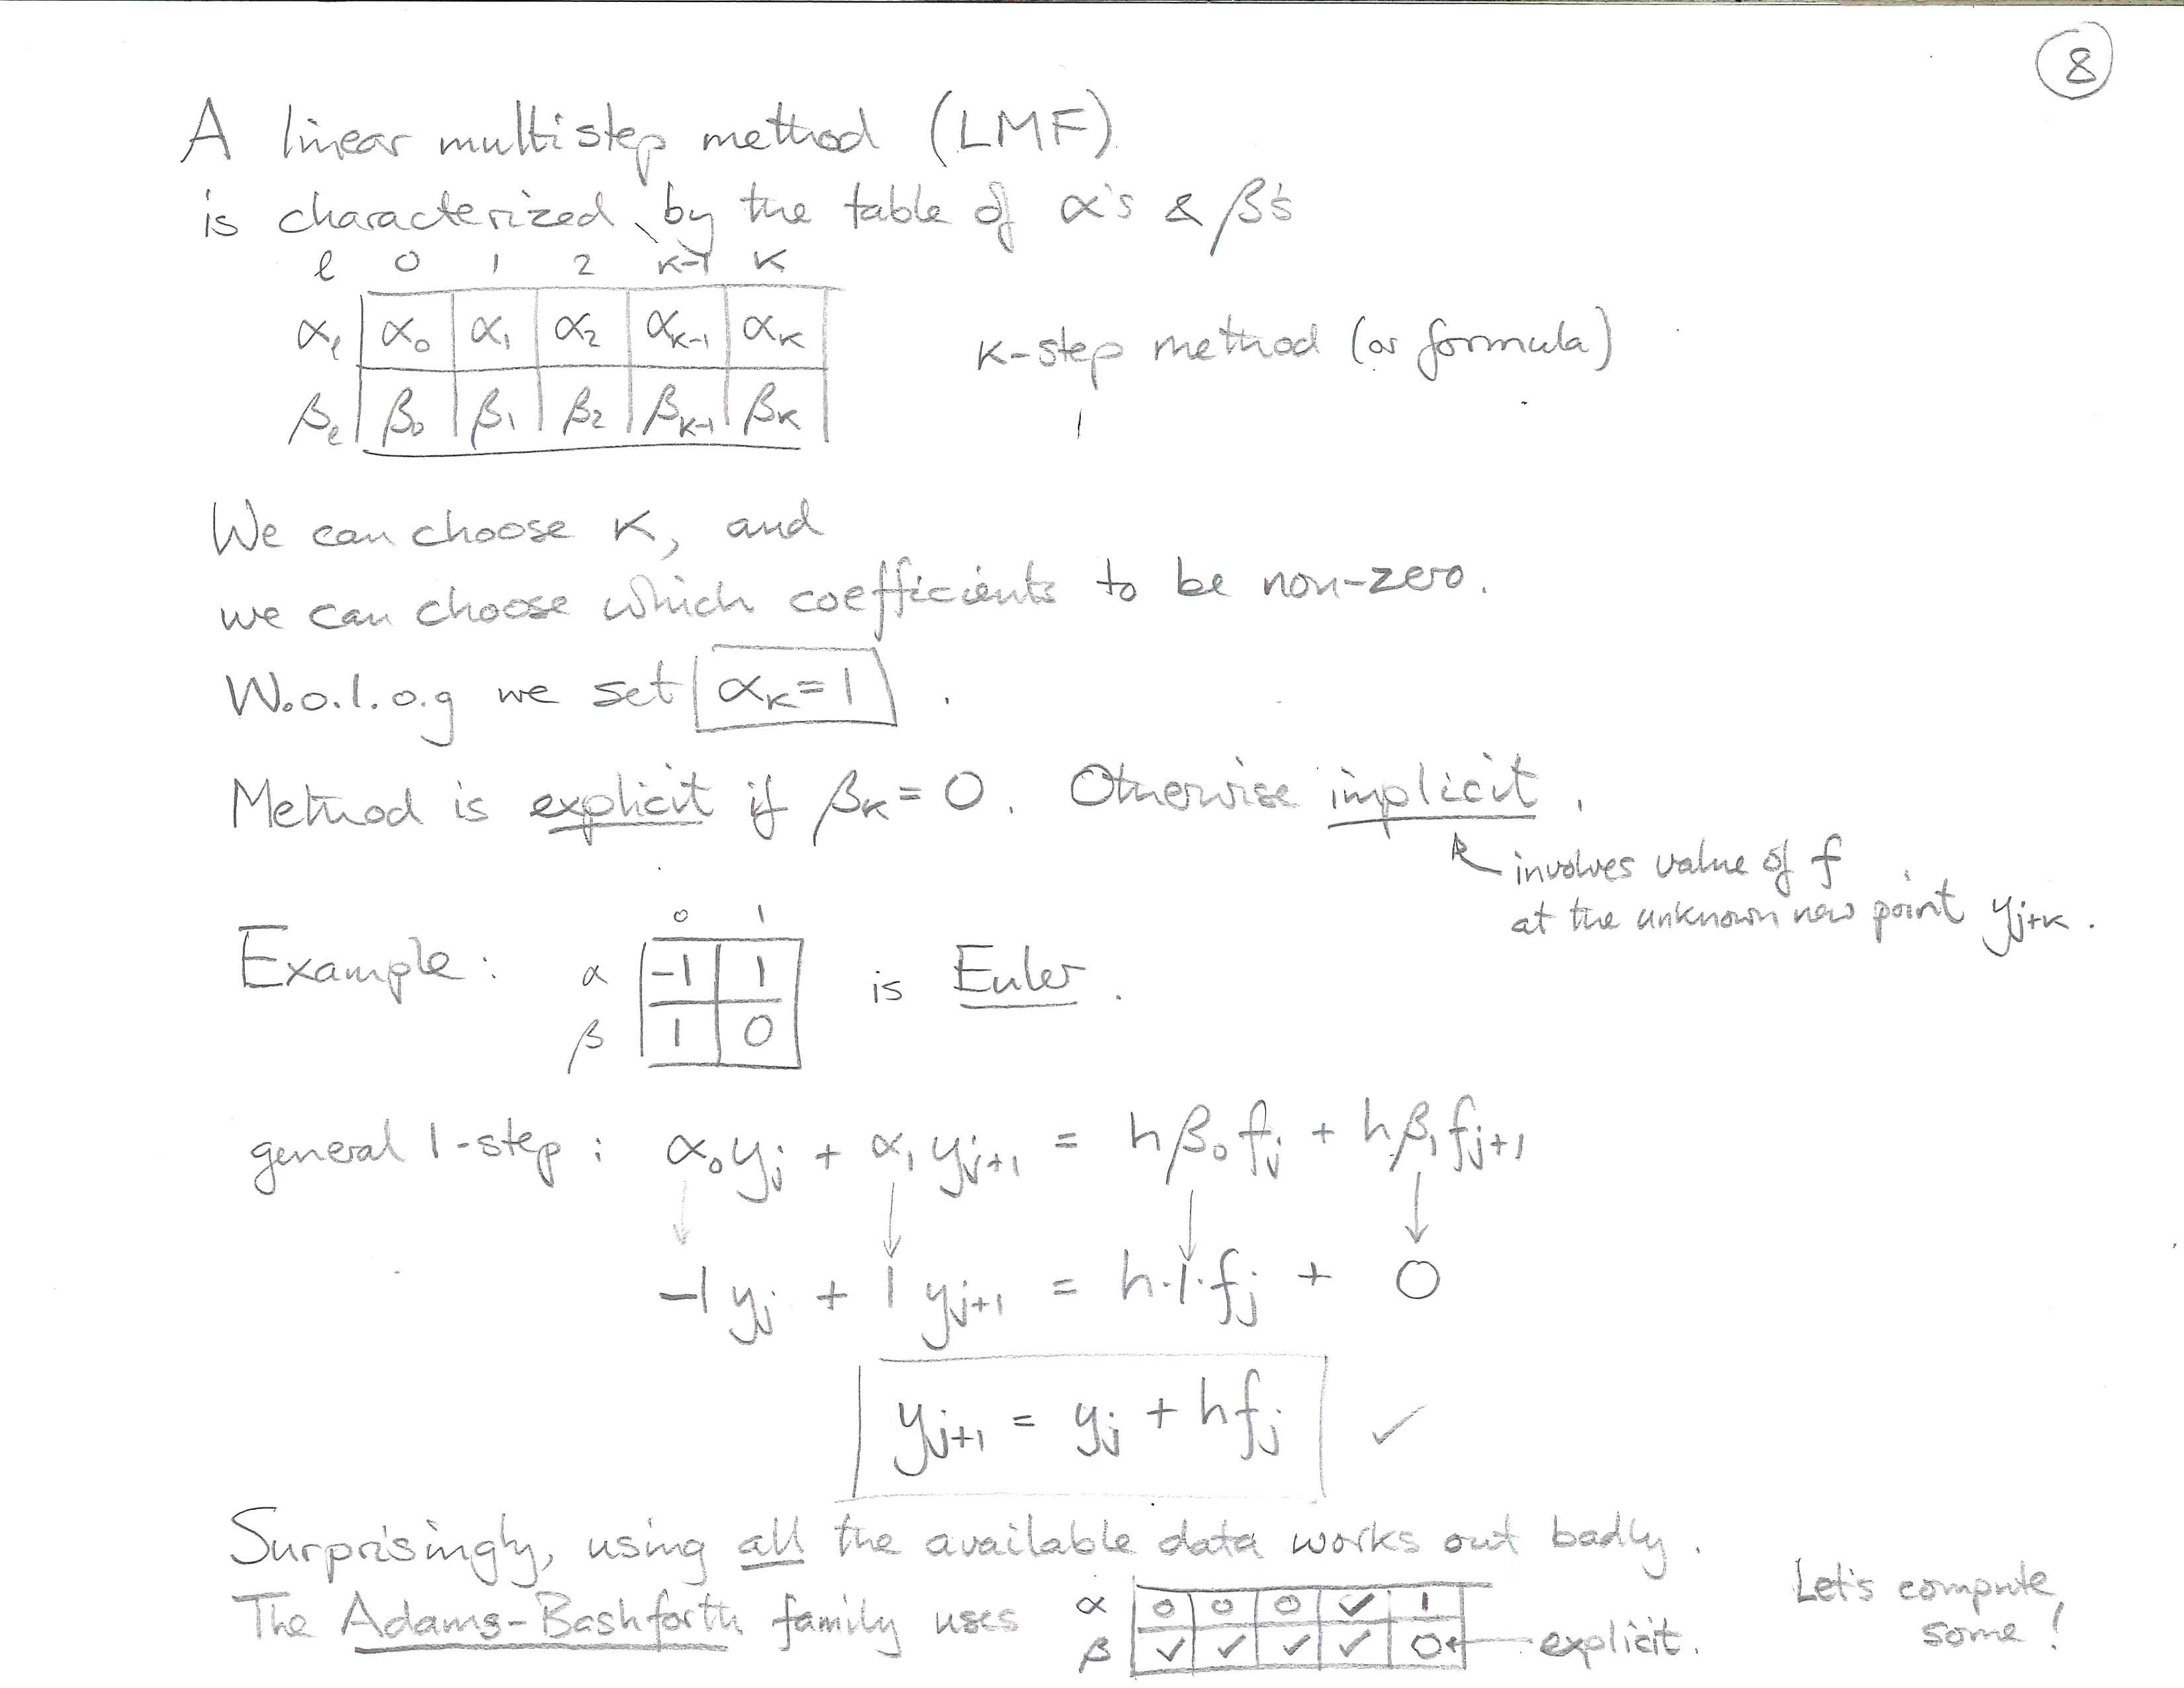 8
A linear multistep method (LMF)
is characterized by the table of α's & β's
ℓ 0 1 2 K-1 K
αℓ α₀ α₁ α₂ αK-1 αK
K-step method (or formula)
βℓ β₀ β₁ β₂ βK-1 βK
We can choose K, and
we can choose which coefficients to be non-zero.
W.o.l.o.g we set αK = 1 .
Method is explicit if βK = 0. Otherwise implicit.
involves value of f
at the unknown new point yj+K.
0 1
Example: α -1 1 is Euler.
β 1 0
general 1-step: α₀yj + α₁yj+1 = hβ₀fj + hβ₁fj+1
-1 yj + 1 yj+1 = h·1·fj + 0
yj+1 = yj + hfj ✓
Surprisingly, using all the available data works out badly.
The Adams-Bashforth family uses
α 0 0 0 ✓ 1
β ✓ ✓ ✓ ✓ 0 ← explicit.
Let's compute
some!